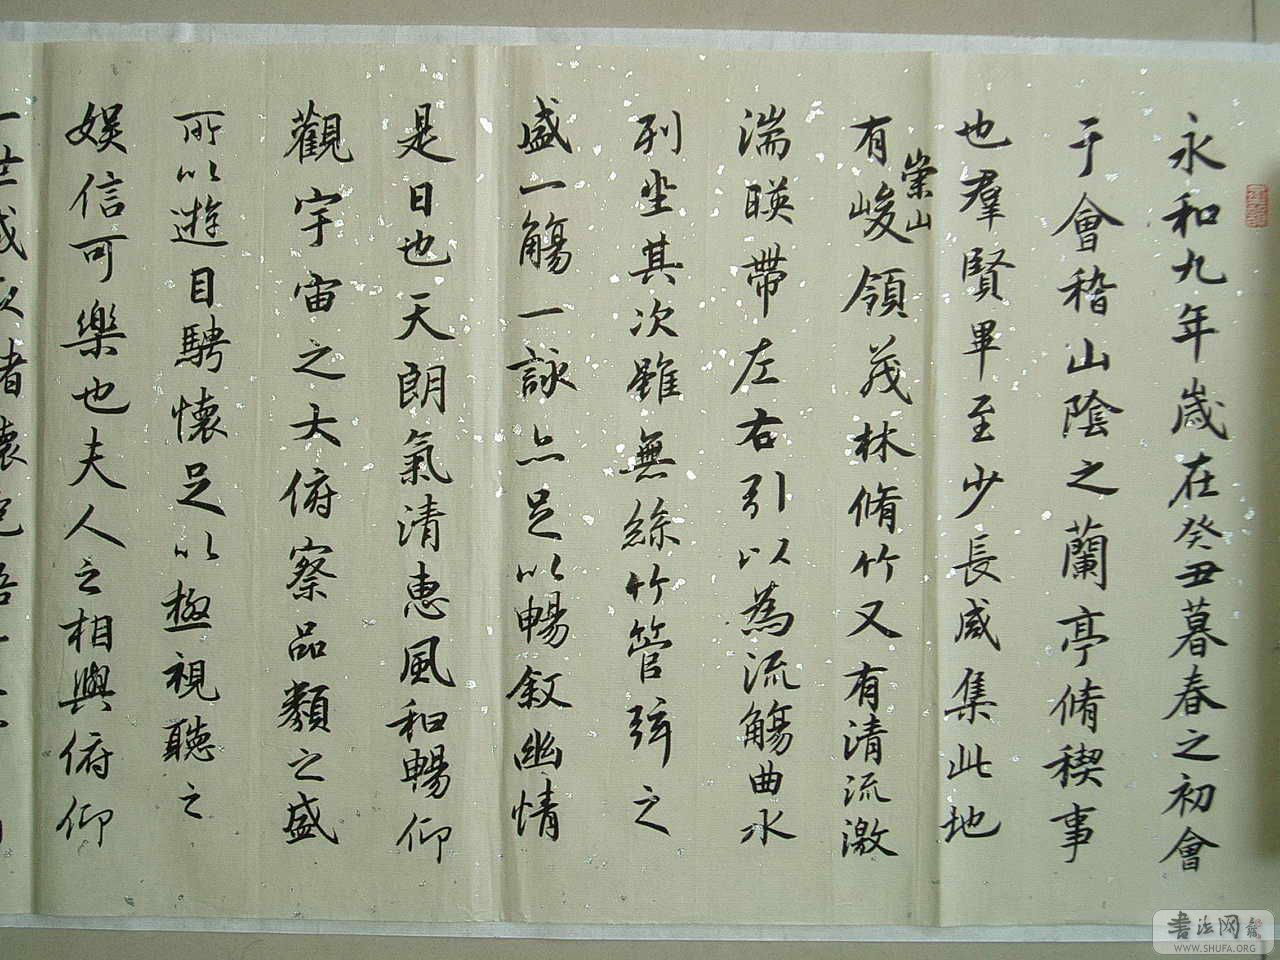 永和九年歲在癸丑暮春之初會
于會稽山陰之蘭亭脩稧事
也羣賢畢至少長咸集此地
有崇山峻領茂林脩竹又有清流激
湍暎帶左右引以為流觴曲水
列坐其次雖無絲竹管弦之
盛一觴一詠亦足以暢敘幽情
是日也天朗氣清惠風和暢仰
觀宇宙之大俯察品類之盛
所以遊目騁懷足以極視聽之
娛信可樂也夫人之相與俯仰
一世或
書法网
WWW.SHUFA.ORG